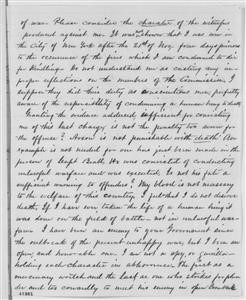 of war. Please consider the character of the witnesses
produced against me. It was shown that I was now in
the City of New York after the 28th of Nov. four days previous
to the occurrence of the fires which I am condemned to die
for Kindling. Do not understand me as casting any im-
proper reflections on the members of the Commission, I
suppose they did their duty as conscientious men perfectly
aware of the responsibility of condemning a human being to death
Granting the evidence addressed sufficient for convicting
me of this last charge is not the penalty too severe for
the offence? Arson is not punishable with death. An
example is not needed for one has just been made in the
person of Capt Beall. He was convicted of conducting
unlawful warfare and was executed. Is not his fate a
sufficient warning to offenders? My blood is not necessary
to the welfare of this country, and that I do not deserve
death. If I have ever taken the life of a human being it
was done on the field of battle - not in unlawful war-
fare. I have been an enemy to your Government since
the outbreak of the present unhappy war but I have been an
open and honorable one. I am not a spy, or guerilla -
holding each character in abhorrence. The first as a
mercenary wretch and the last as one who strikes for plun-
der and too cowardly to meet his enemy in open
41981